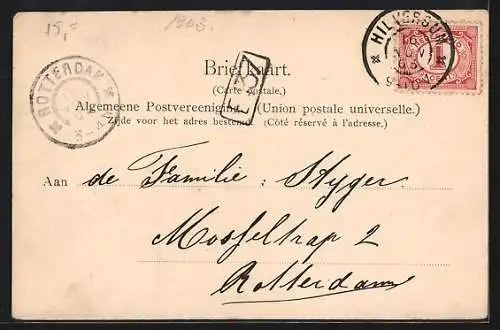 15,=
1903.
HILVERSUM
ROTTERDAM
1
Briefkaart.
(Carte postale.)
Algemeene Postvereeniging. (Union postale universelle.)
Zijde voor het adres bestemd. (Côté réservé à l'adresse.)
Aan de Familie: Styger
Mosseltrap 2
Rotterdam